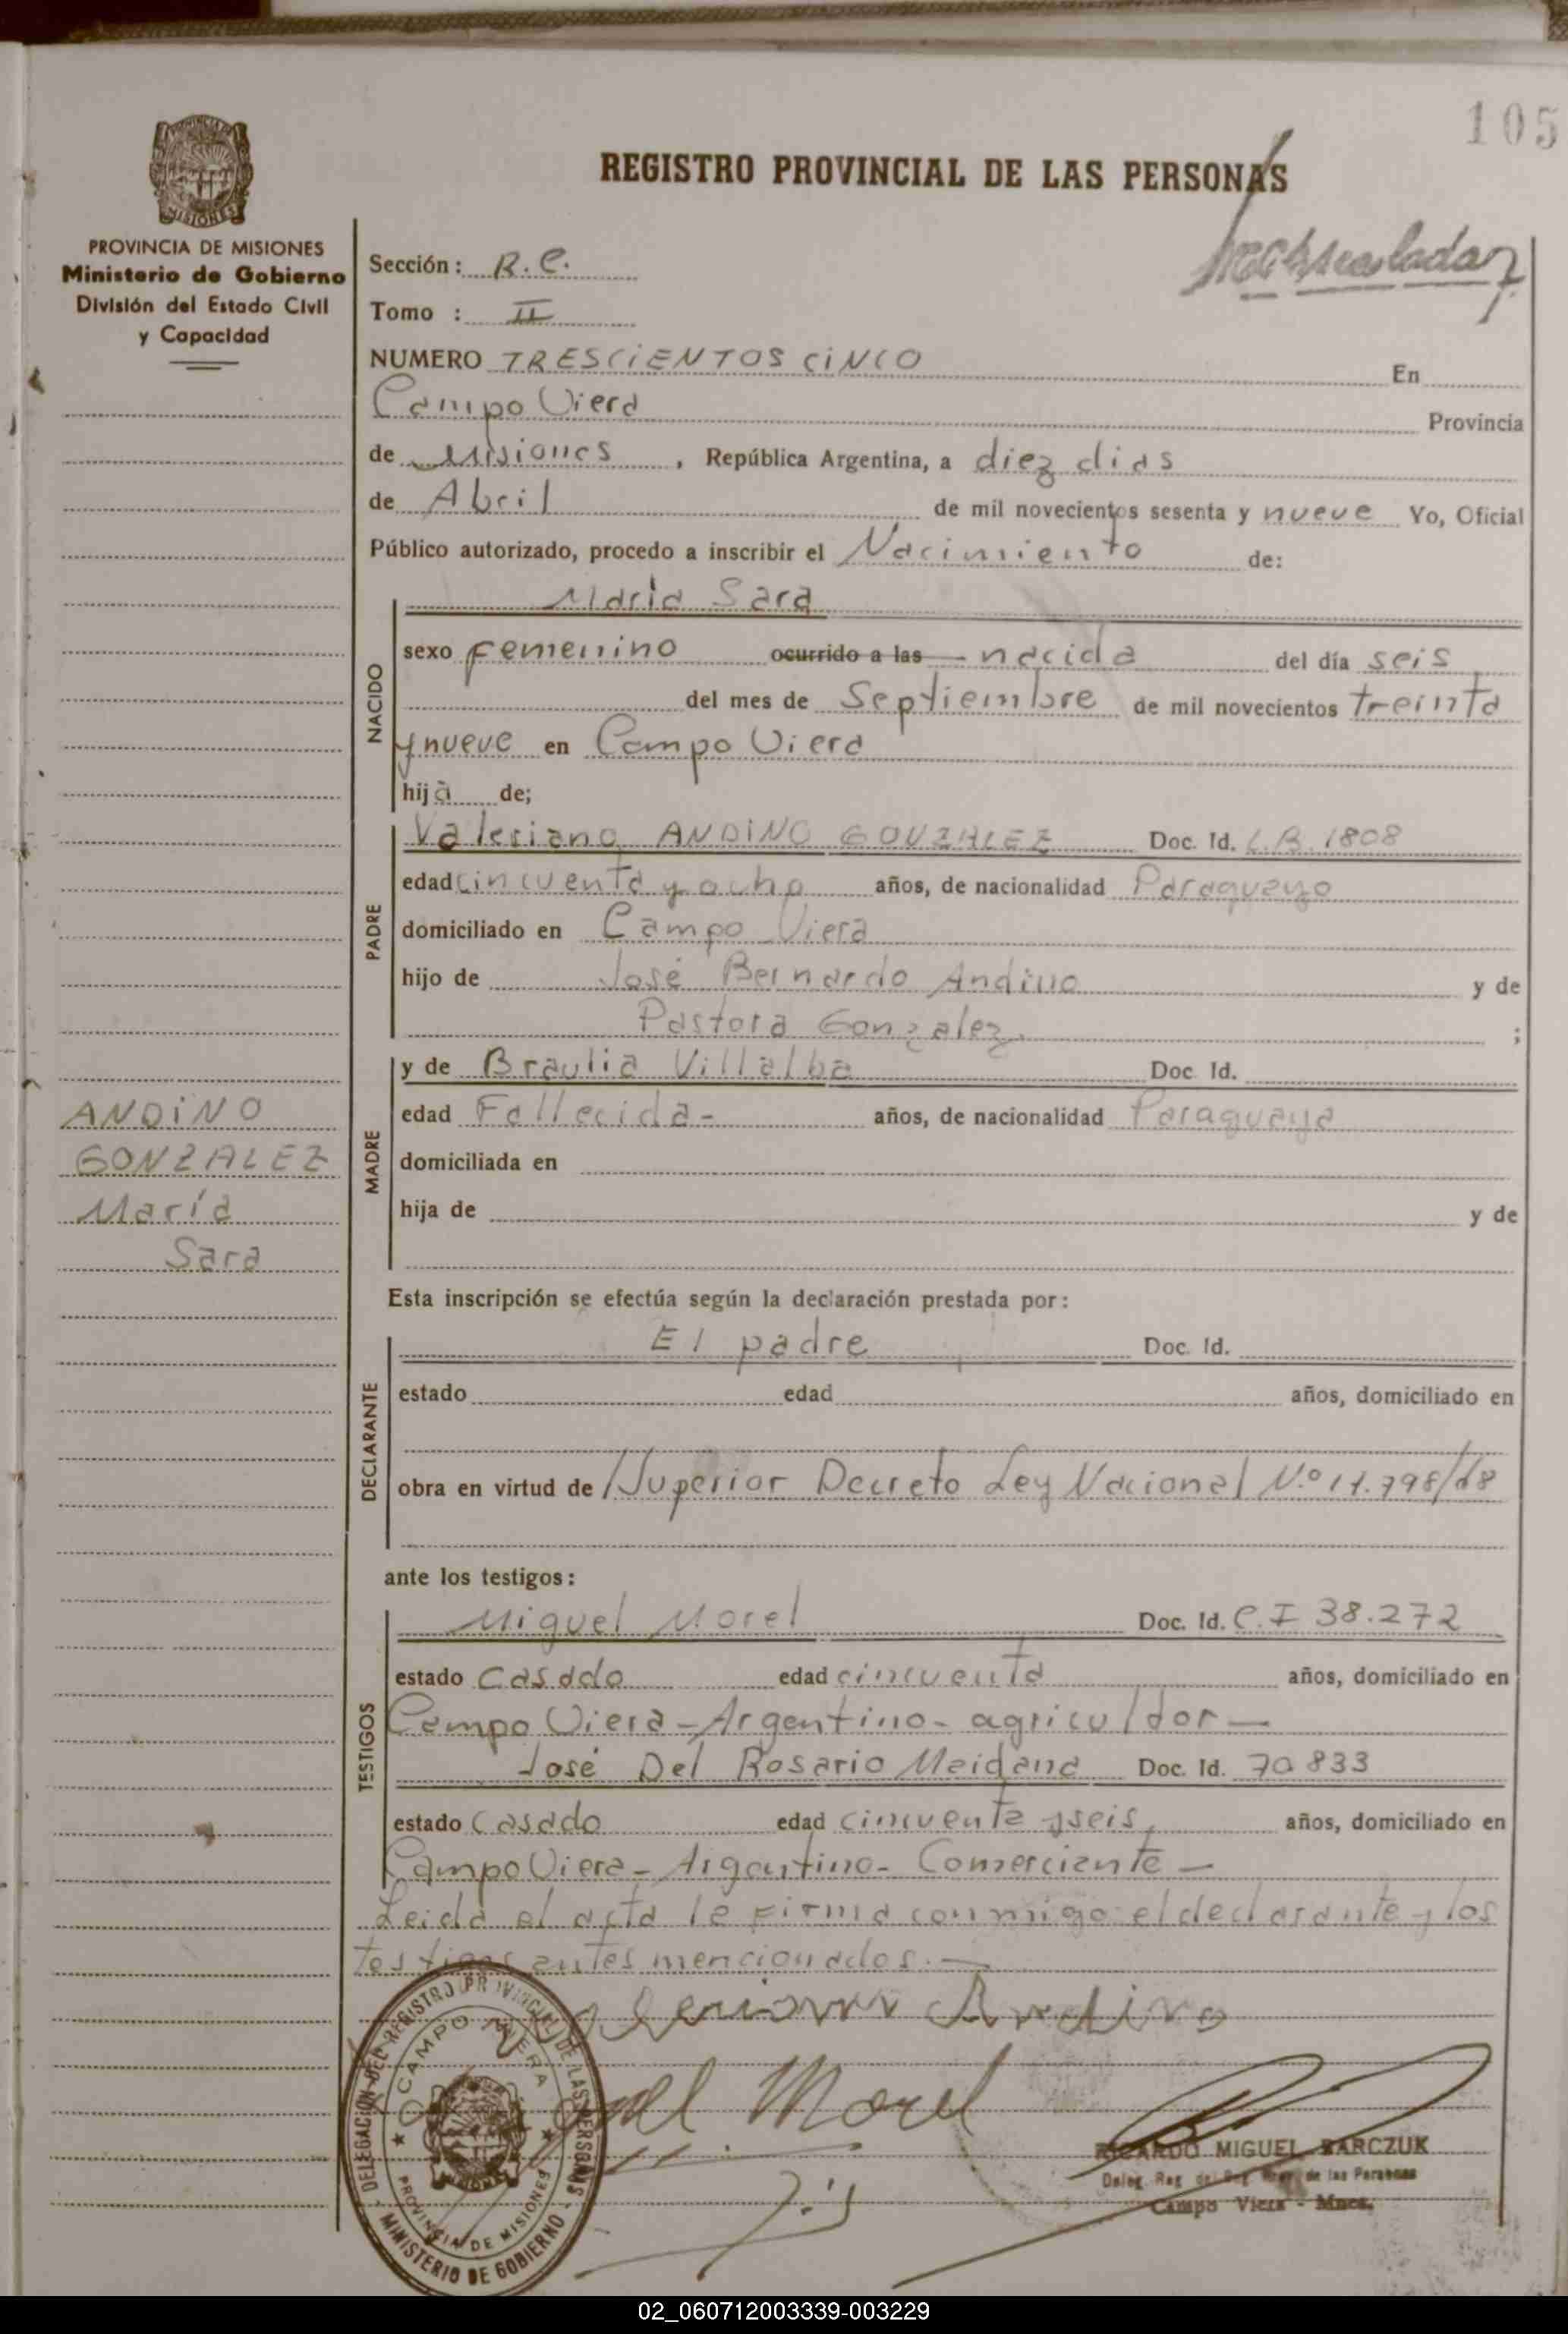 105
REGISTRO PROVINCIAL DE LAS PERSONAS
PROVINCIA DE MISIONES
Ministerio de Gobierno
División del Estado Civil
y Capacidad
Sección: R.C.
Tomo : II
NUMERO TRESCIENTOS CINCO En
Campo Viera Provincia
de Misiones , República Argentina, a diez dias
de Abril de mil novecientos sesenta y nueve Yo, Oficial
Público autorizado, procedo a inscribir el Nacimiento de:
NACIDO
Maria Sara
sexo Femenino ocurrido a las nacida del día seis
del mes de Septiembre de mil novecientos treinta
y nueve en Campo Viera
hija de;
PADRE
Valeriano ANDINO GONZALEZ Doc. Id. L.B. 1808
edad cincuenta y ocho años, de nacionalidad Paraguayo
domiciliado en Campo Viera
hijo de José Bernardo Andino y de
Pastora Gonzalez ;
MADRE
y de Braulia Villalba Doc. Id.
edad Fallecida- años, de nacionalidad Paraguaya
domiciliada en
hija de y de
ANDINO
GONZALEZ
María
Sara
Esta inscripción se efectúa según la declaración prestada por:
DECLARANTE
El padre Doc. Id.
estado edad años, domiciliado en
obra en virtud de Superior Decreto Ley Nacional N.º
ante los testigos:
TESTIGOS
Miguel Morel Doc. Id. C.I 38.272
estado Casado edad cincuenta años, domiciliado en
Campo Viera - Argentino - agricultor —
José Del Rosario Maidana Doc. Id. 70833
estado Casado edad cincuenta y seis años, domiciliado en
Campo Viera - Argentino - Comerciante —
Leida el acta la firma conmigo el declarante y los
testigos antes mencionados. —
Andino
Morel
DELEGACION DEL REGISTRO PROVINCIAL DE LAS PERSONAS
CAMPO VIERA
PROVINCIA DE MISIONES
MINISTERIO DE GOBIERNO
RICARDO MIGUEL BARCZUK
Deleg. Reg. de las Personas
Campo Viera - Mnes.
02_060712003339-003229